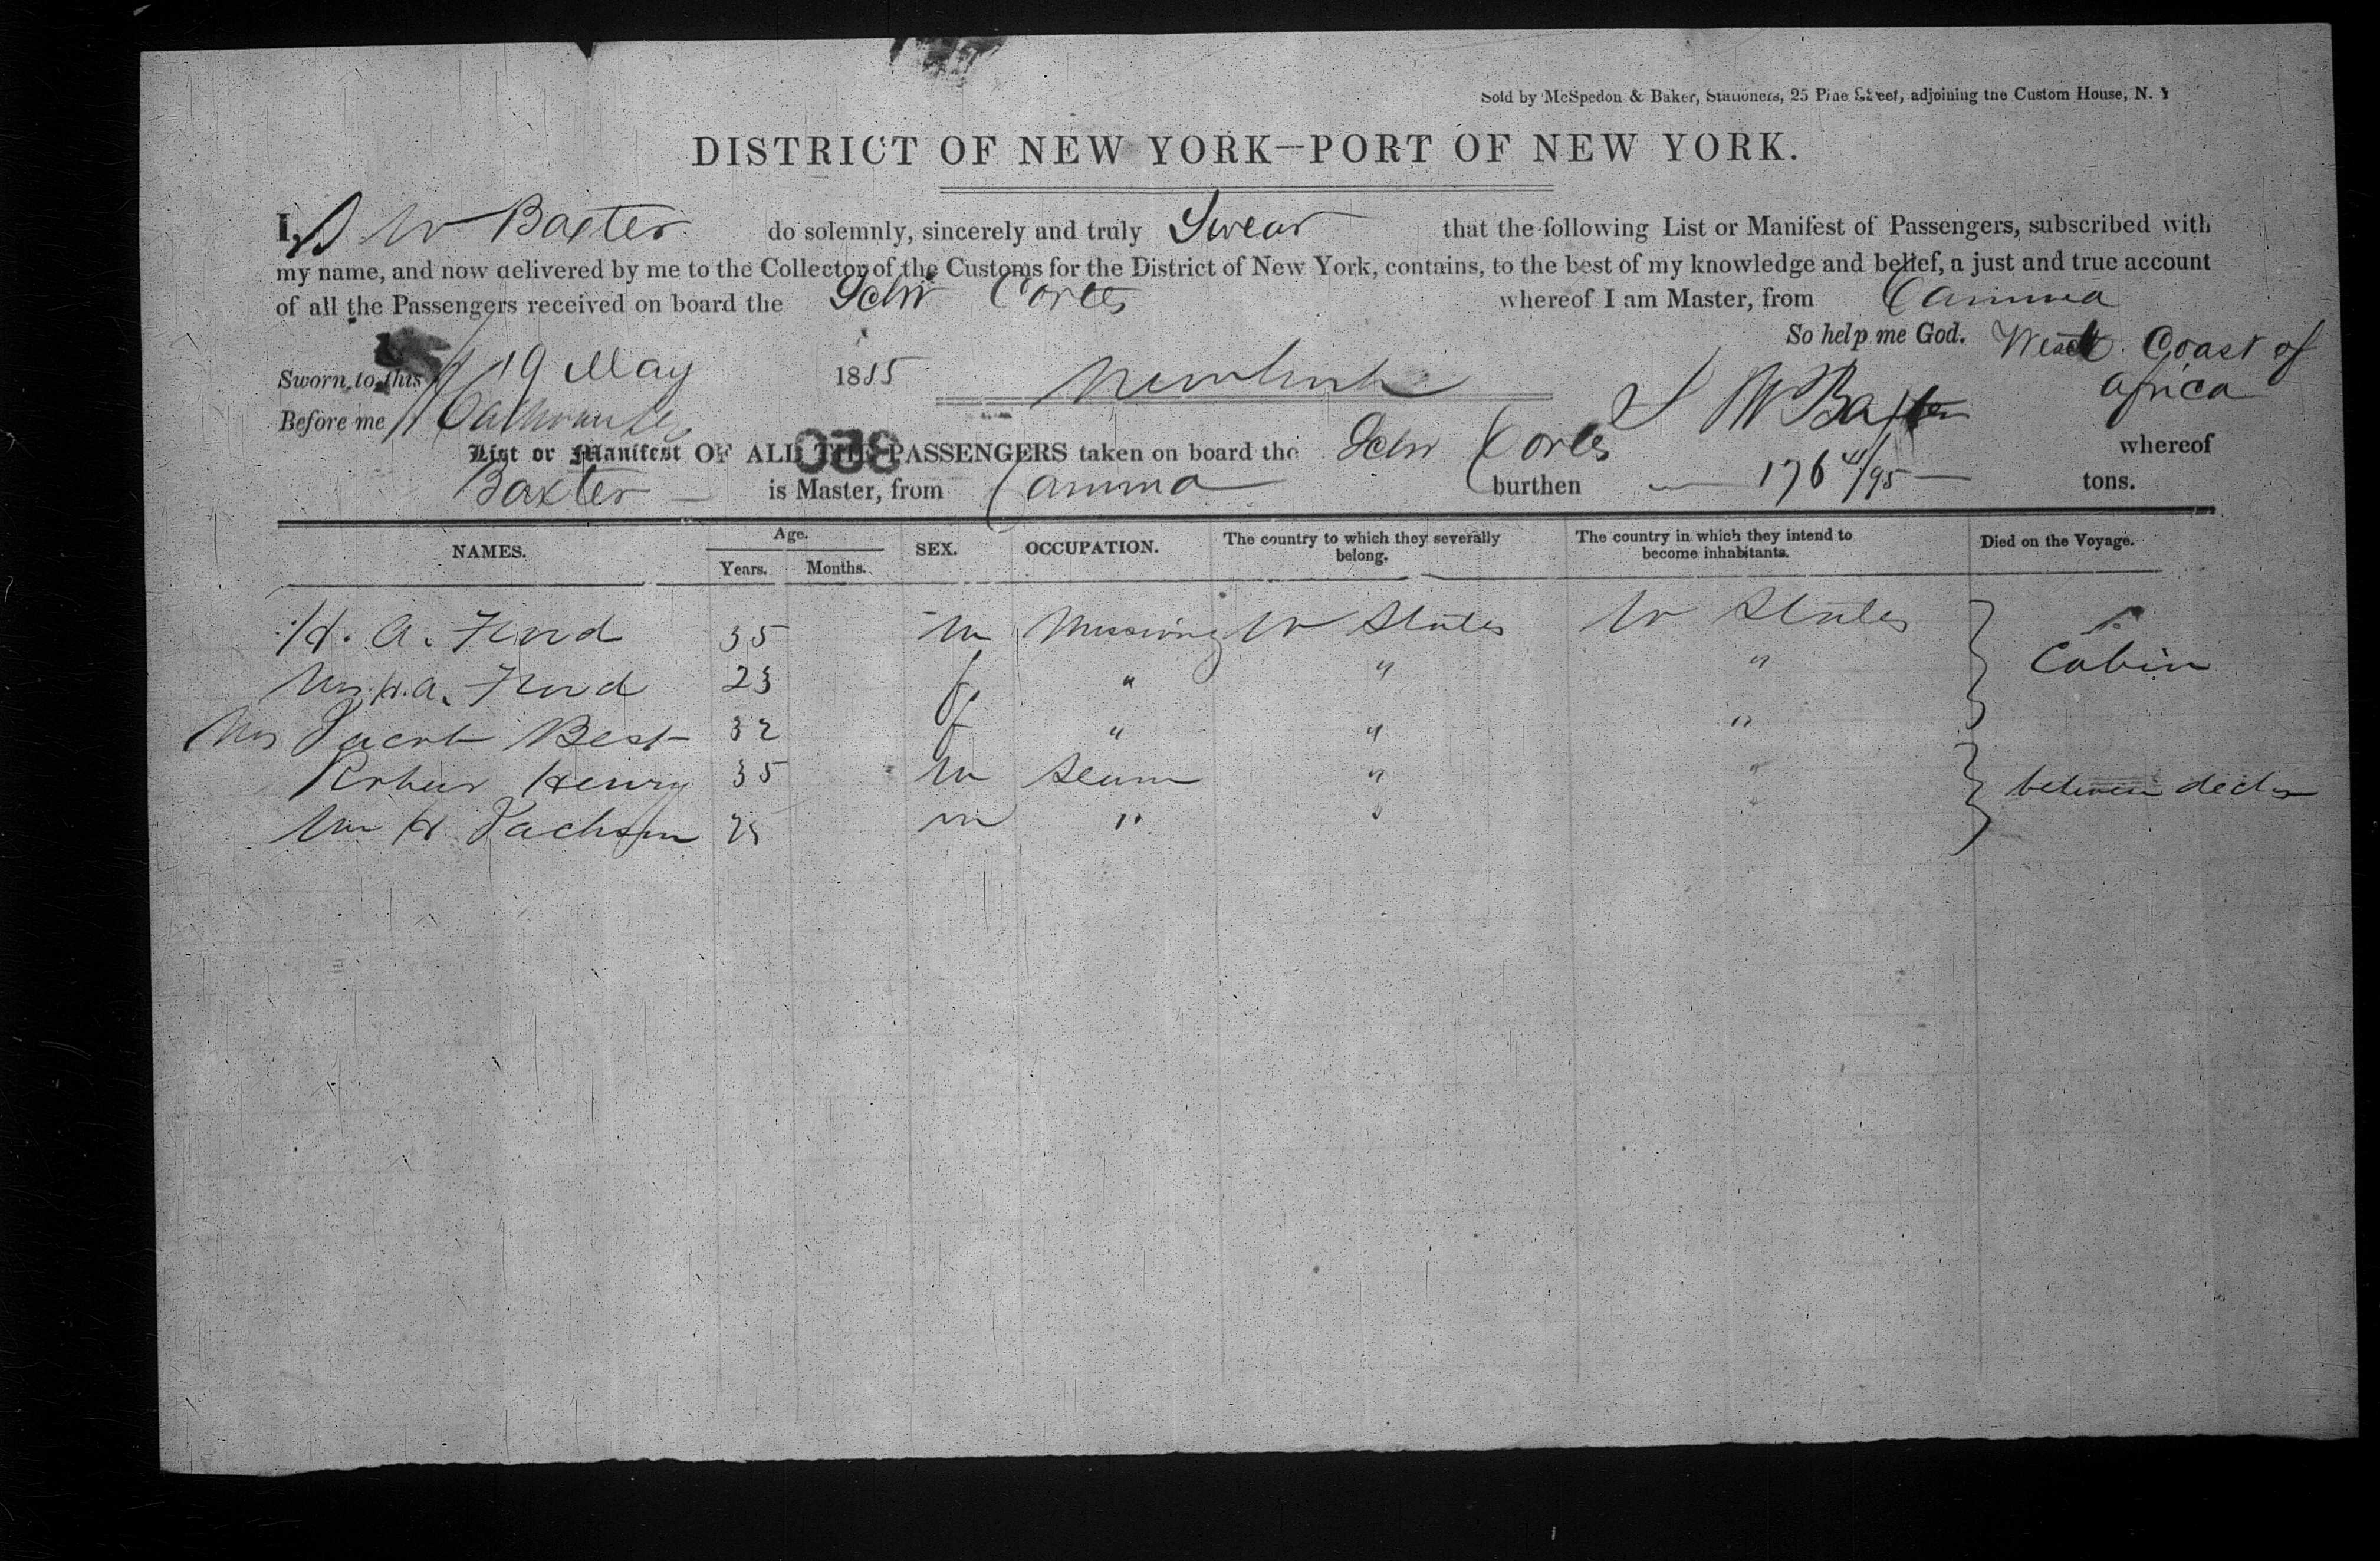 Sold by McSpedon & Baker, Stationers, 25 Pine Street, adjoining the Custom House, N. Y
DISTRICT OF NEW YORK—PORT OF NEW YORK.
I, S W Baxter do solemnly, sincerely and truly Swear that the following List or Manifest of Passengers, subscribed with
my name, and now delivered by me to the Collector of the Customs for the District of New York, contains, to the best of my knowledge and belief, a just and true account
of all the Passengers received on board the Schr whereof I am Master, from Camma
So help me God. West Coast of
Africa
Sworn to this 19 May 1855
S W Baxter
Before me
080
List or Manifest OF ALL THE PASSENGERS taken on board the Schr whereof
Baxter is Master, from Camma burthen 176 /95 tons.
NAMES. Age. Years. Months. SEX. OCCUPATION. The country to which they severally belong. The country in which they intend to become inhabitants. Died on the Voyage.
H. A. Ford 35 m U States U States
Mrs H. A. Ford 23 f " " " Cabin
Mrs Jacob Best 32 f " " "
Henry 35 m Seaman " " between decks
Wm H Jackson 25 m " " "